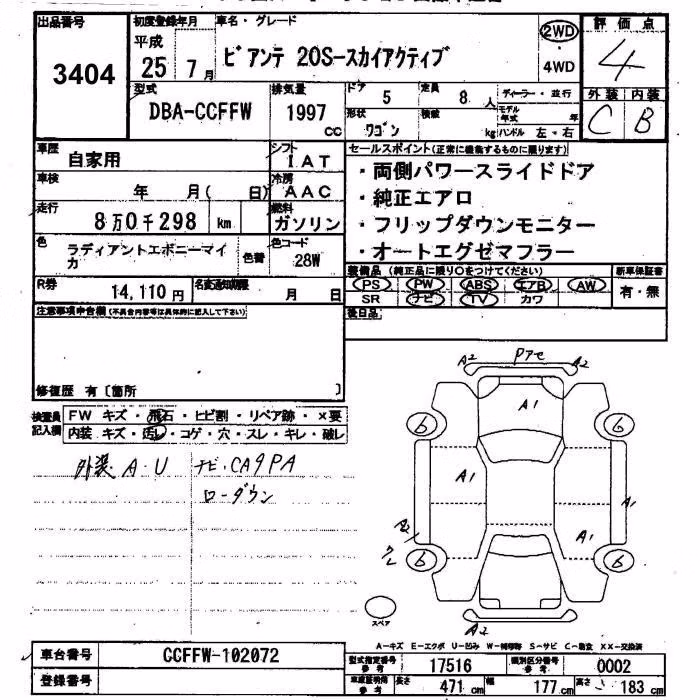 出品番号 初度登録年月 車名・グレード 評価点
3404 平成 25年 7月 ビアンテ 20S-スカイアクティブ 2WD 4WD 4
型式 排気量 ドア 定員 ディーラー・並行 外装 内装
DBA-CCFFW 1997 CC 5 8人 モデル年式 年 C B
形状 ワゴン 積載 kg ハンドル 左・右
車歴 自家用 シフト IAT セールスポイント(正常に機能するものに限ります)
車検 年 月( 日) 冷房 AAC ・両側パワースライドドア
・純正エアロ
走行 8万0千298 km 燃料 ガソリン ・フリップダウンモニター
色 ラディアントエボニーマイカ 色替 色コード 28W ・オートエグゼマフラー
装備品(純正品に限り○をつけてください) 新車保証書
R券 14,110円 名変通知期限 月 日 PS PW ABS エアB AW 有・無
SR ナビ TV カワ
注意事項申告欄(不具合内容等は具体的に記入して下さい) 後日品
修復歴 有〔箇所 〕
検査員記入欄 FW キズ・飛石・ヒビ割・リペア跡・×要
内装 キズ・汚レ・コゲ・穴・スレ・キレ・破レ
外装 A・U ナビ・CA9PA
ローダウン
A2 Pアセ A2
A1
6 6
A1 A1
A2 A1
6 6
A2
スペア
A-キズ E-エクボ U-凹み W-補修等 S-サビ C-腐食 XX-交換済
車台番号 CCFFW-102072 型式指定番号 参考 17516 類別区分番号 参考 0002
登録番号 車庫証明用 参考 長さ 471cm 幅 177cm 高さ 183cm